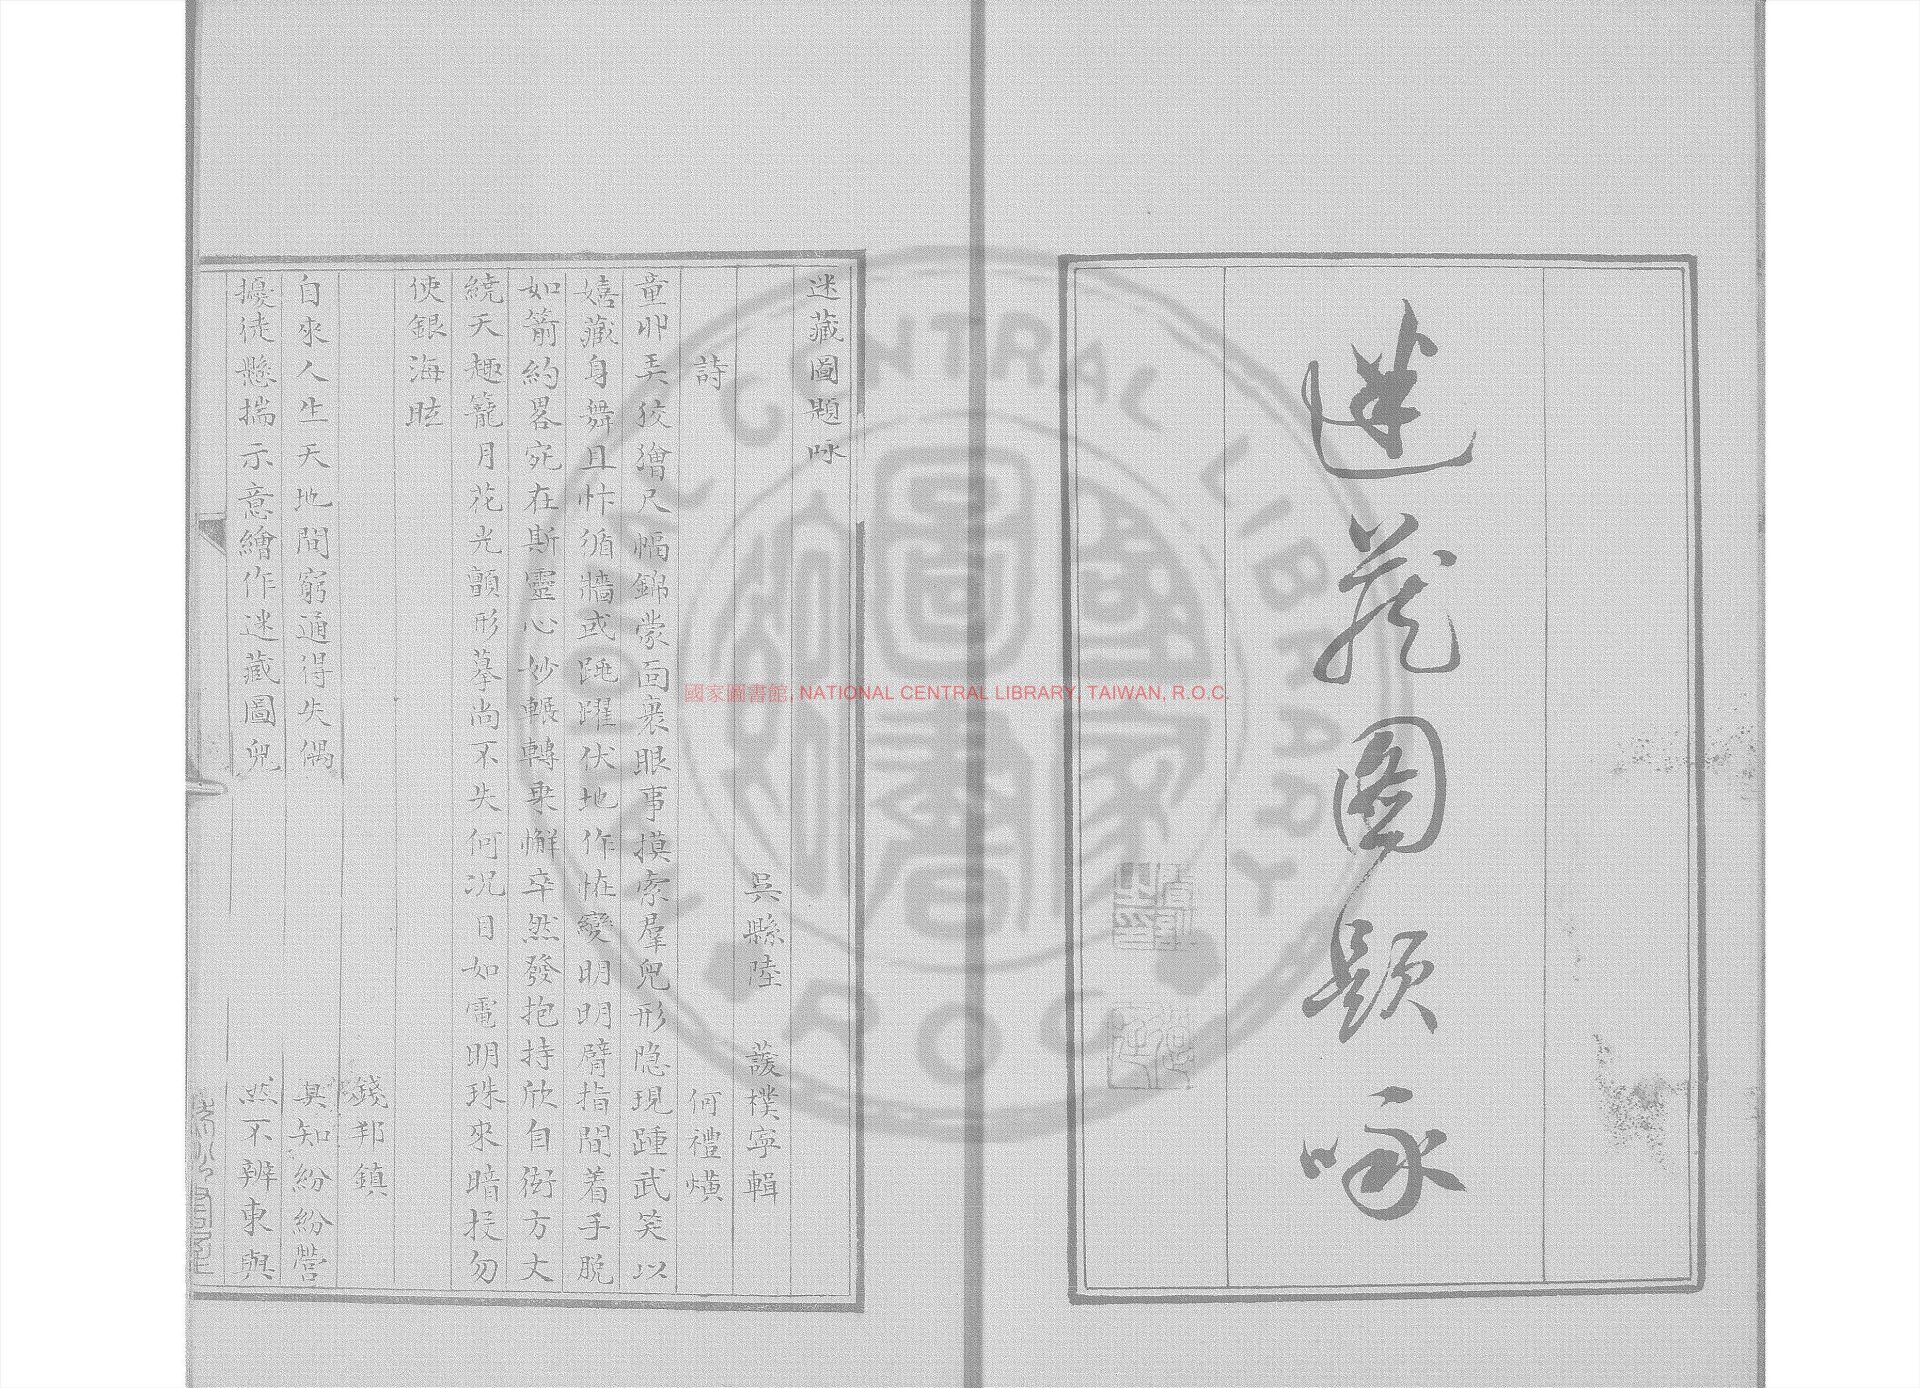 迷藏圖題咏
迷藏圖題咏
吳縣陸 䕶樸寧輯
詩 何禮熿
童丱弄狡獪尺幅錦蒙面裹眼事摸索羣兒形隐現踵武笑以
嬉藏身舞且忭循牆或跪躍伏地作恠變明明臂指間着手脫
如箭約畧宛在斯靈心妙輾轉乗懈卒然發抱持欣自衒方丈
繞天趣籠月花光顫形摹尚不失何况目如電明珠來暗投勿
使銀海眩
錢邦鎮
自來人生天地間窮通得失偶 真知紛紛營
擾徒懸揣示意繪作迷藏圖兒 然不辨東與
國家圖書館, NATIONAL CENTRAL LIBRARY, TAIWAN, R.O.C.
NATIONAL CENTRAL LIBRARY
國家圖書館
R O C